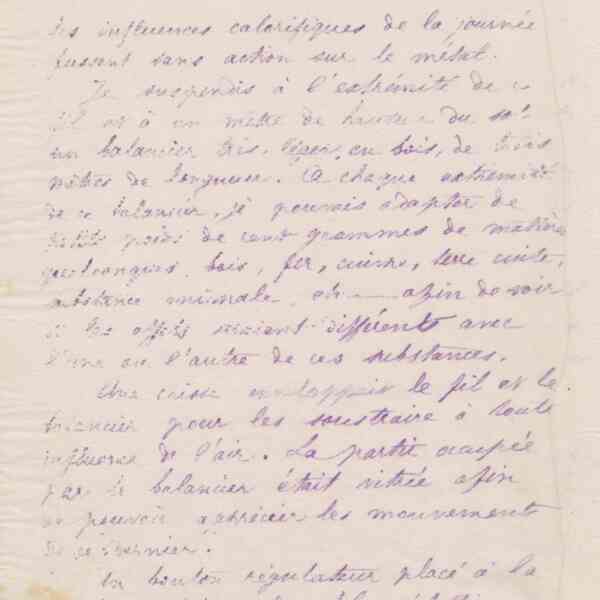 les influences calorifiques de la journée
fussent sans action sur le métal.
Je suspendis à l'extrémité de ce
fil et à un mètre de hauteur du sol
un balancier très léger, en bois, de trois
mètres de longueur. A chaque extrémité
de ce balancier, je pouvais adapter de
petits poids de cent grammes de matières
quelconques, bois, fer, cuivre, terre cuite,
substance minérale, afin de voir
si les effets seraient différents avec
l'une ou l'autre de ces substances.
Une caisse enveloppait le fil et le
balancier pour les soustraire à toute
influence de l'air. La partie occupée
par le balancier était vitrée afin
de pouvoir apprécier les mouvements
de ce dernier.
Un bouton régulateur placé à la